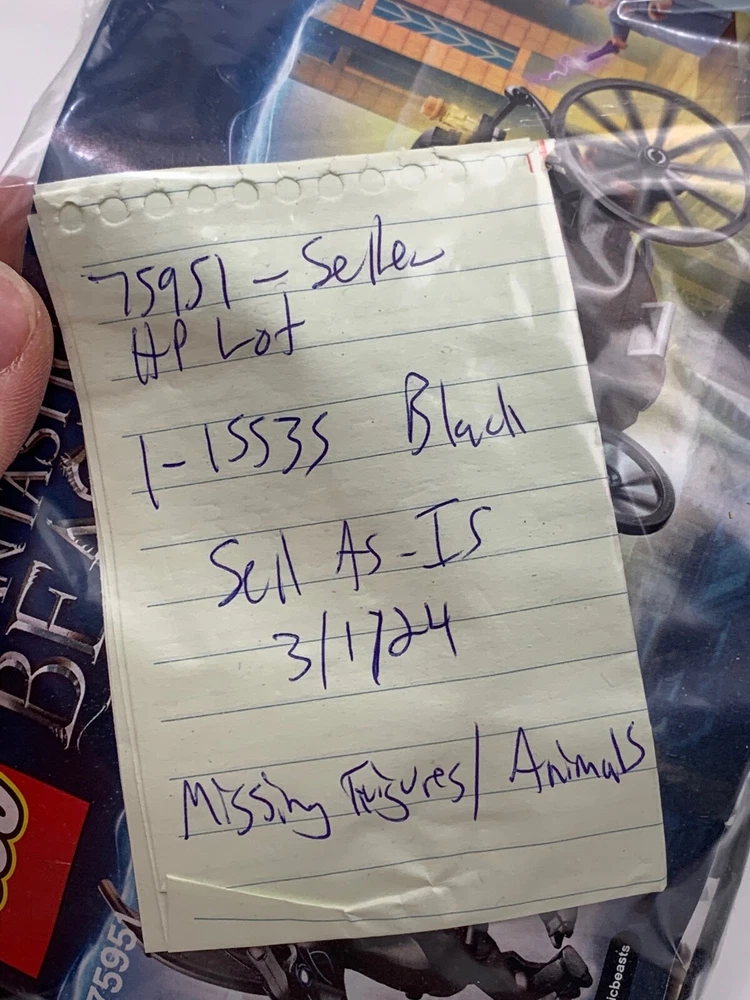 75951 - Seller
HP Lot
1-15535 Black
Sell As-Is
3/1/24
Missing Figures/ Animals
BEAS
7595
icbeasts